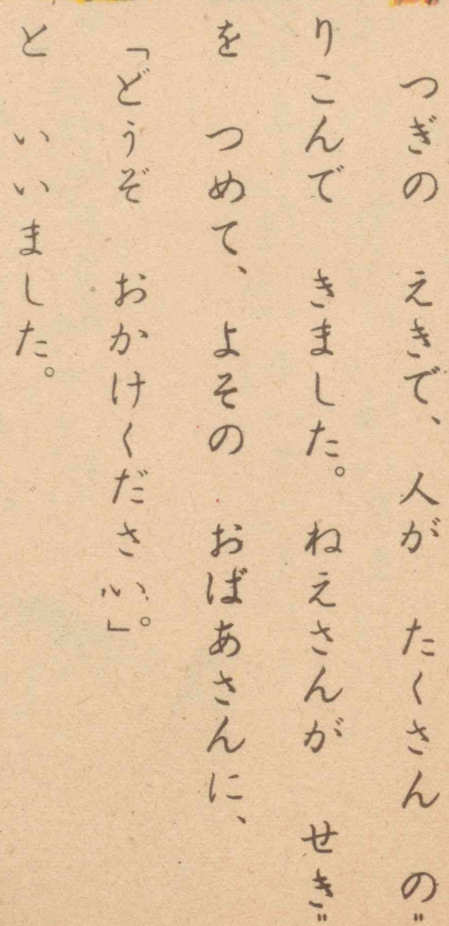 つぎの えきで、人が たくさん の゠
りこんで きました。ねえさんが せき゠
を つめて、よその おばあさんに、
「どうぞ おかけください。」
と いいました。